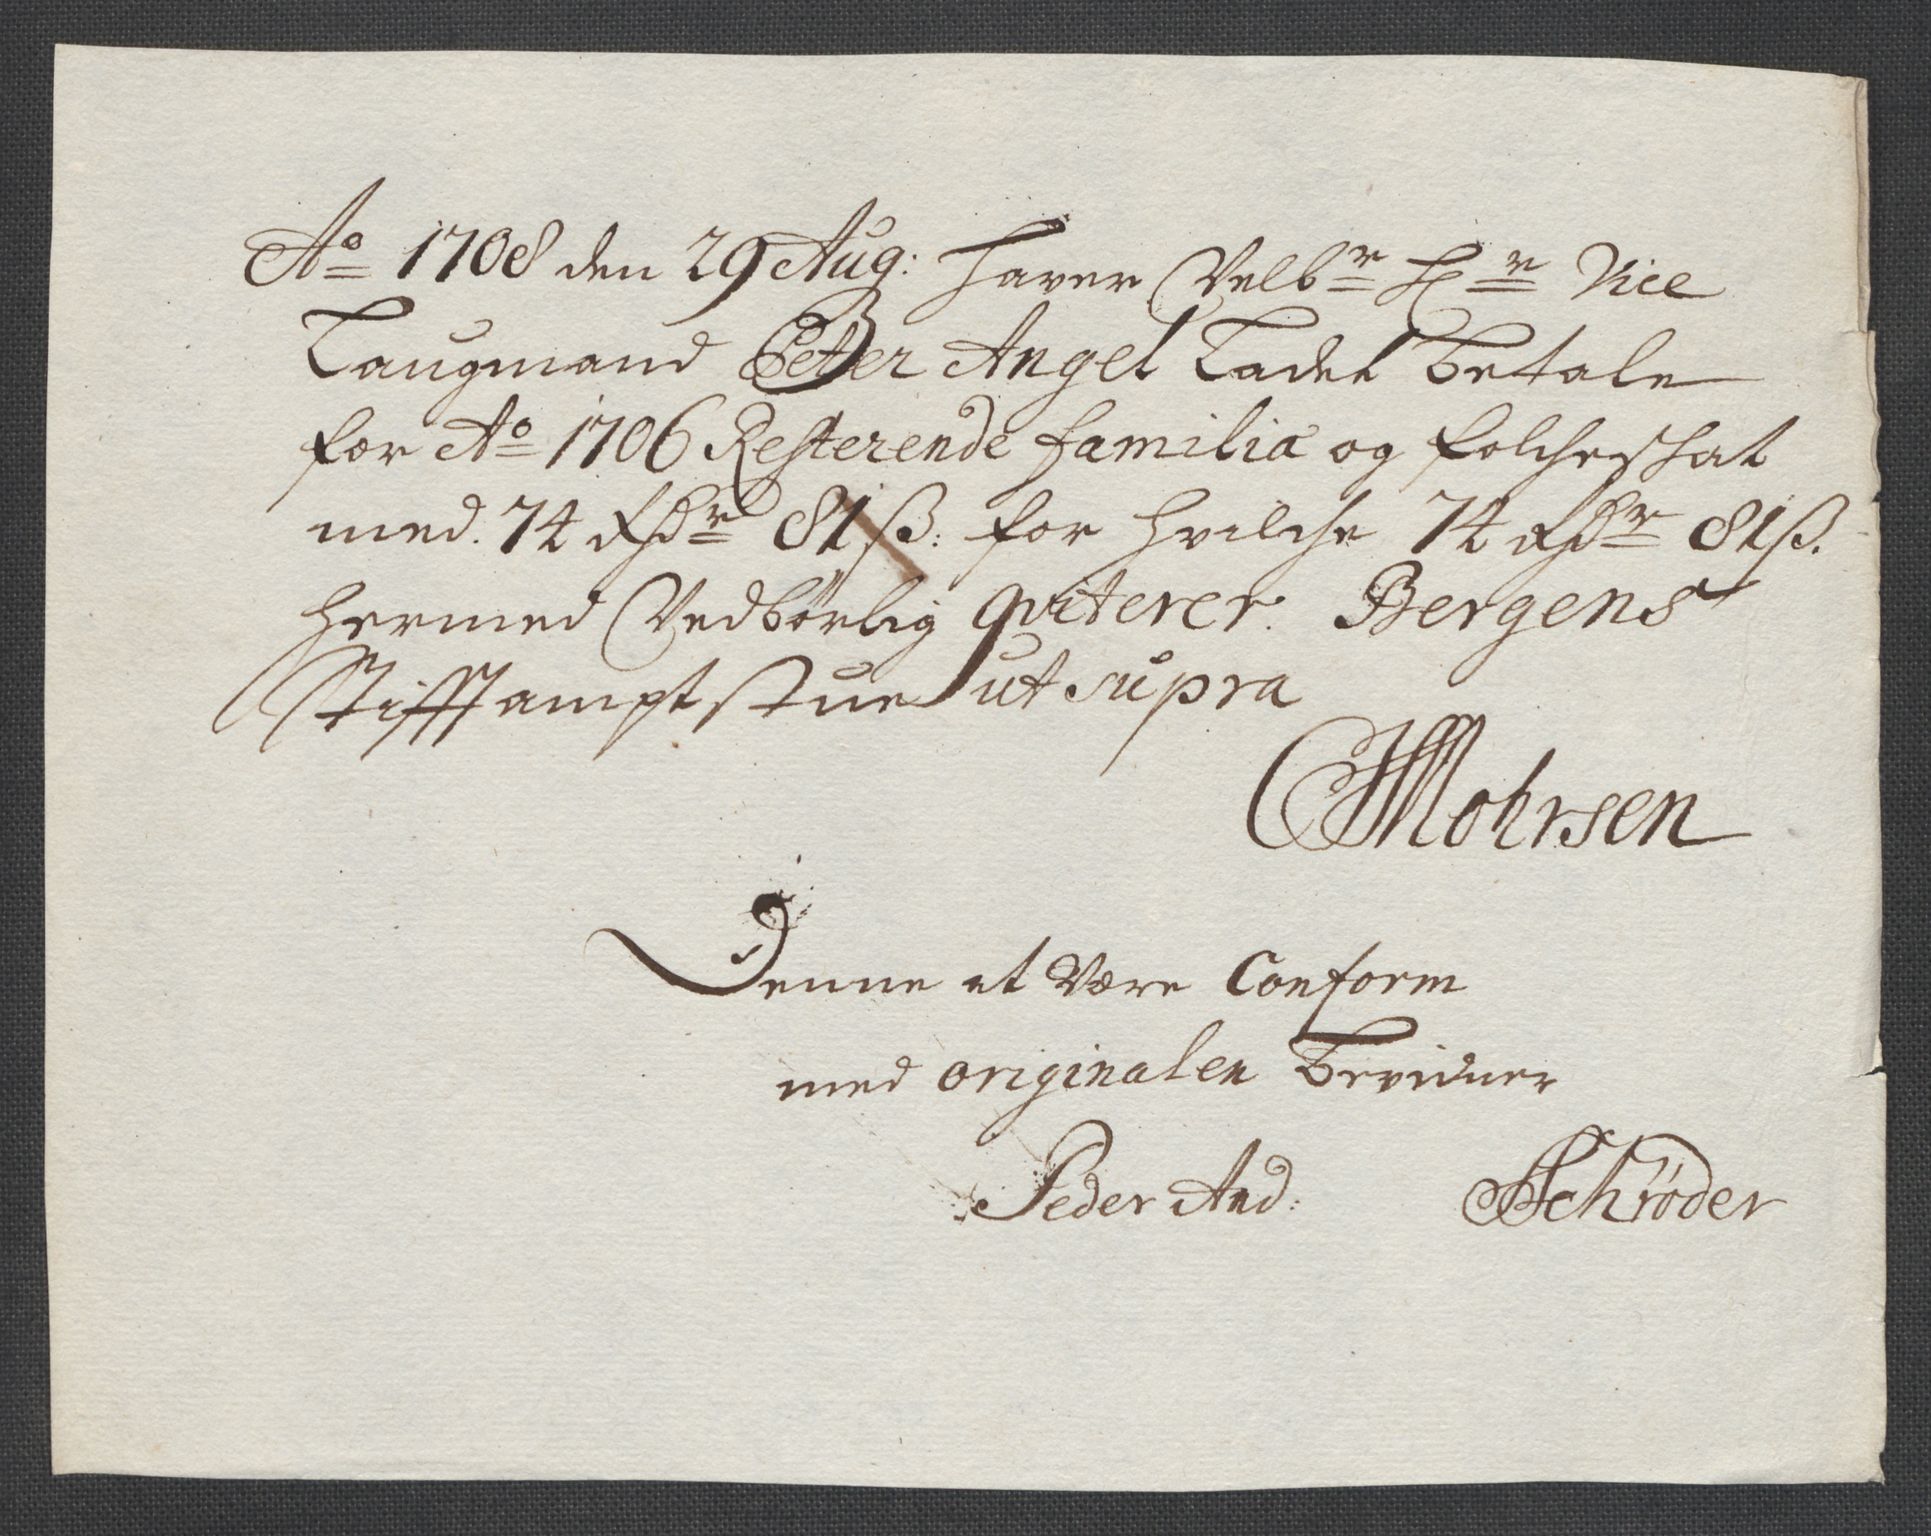 Ao 1708 den 29 Aug: hafver Velbr Hr Vice
Laugmand Peter Angel Ladet betale
for Ao 1706 Resterende familia og folcheschat
med. 74 Rdr 81 ß: for hvilche 74 Rdr 81 ß.
hermed Vedbörlig qviterer. Bergens
Stifftsamptstue ut supra
CHMohrsen
Denne at Være Conform
med originalen bevidner
Peder And: Schrøder